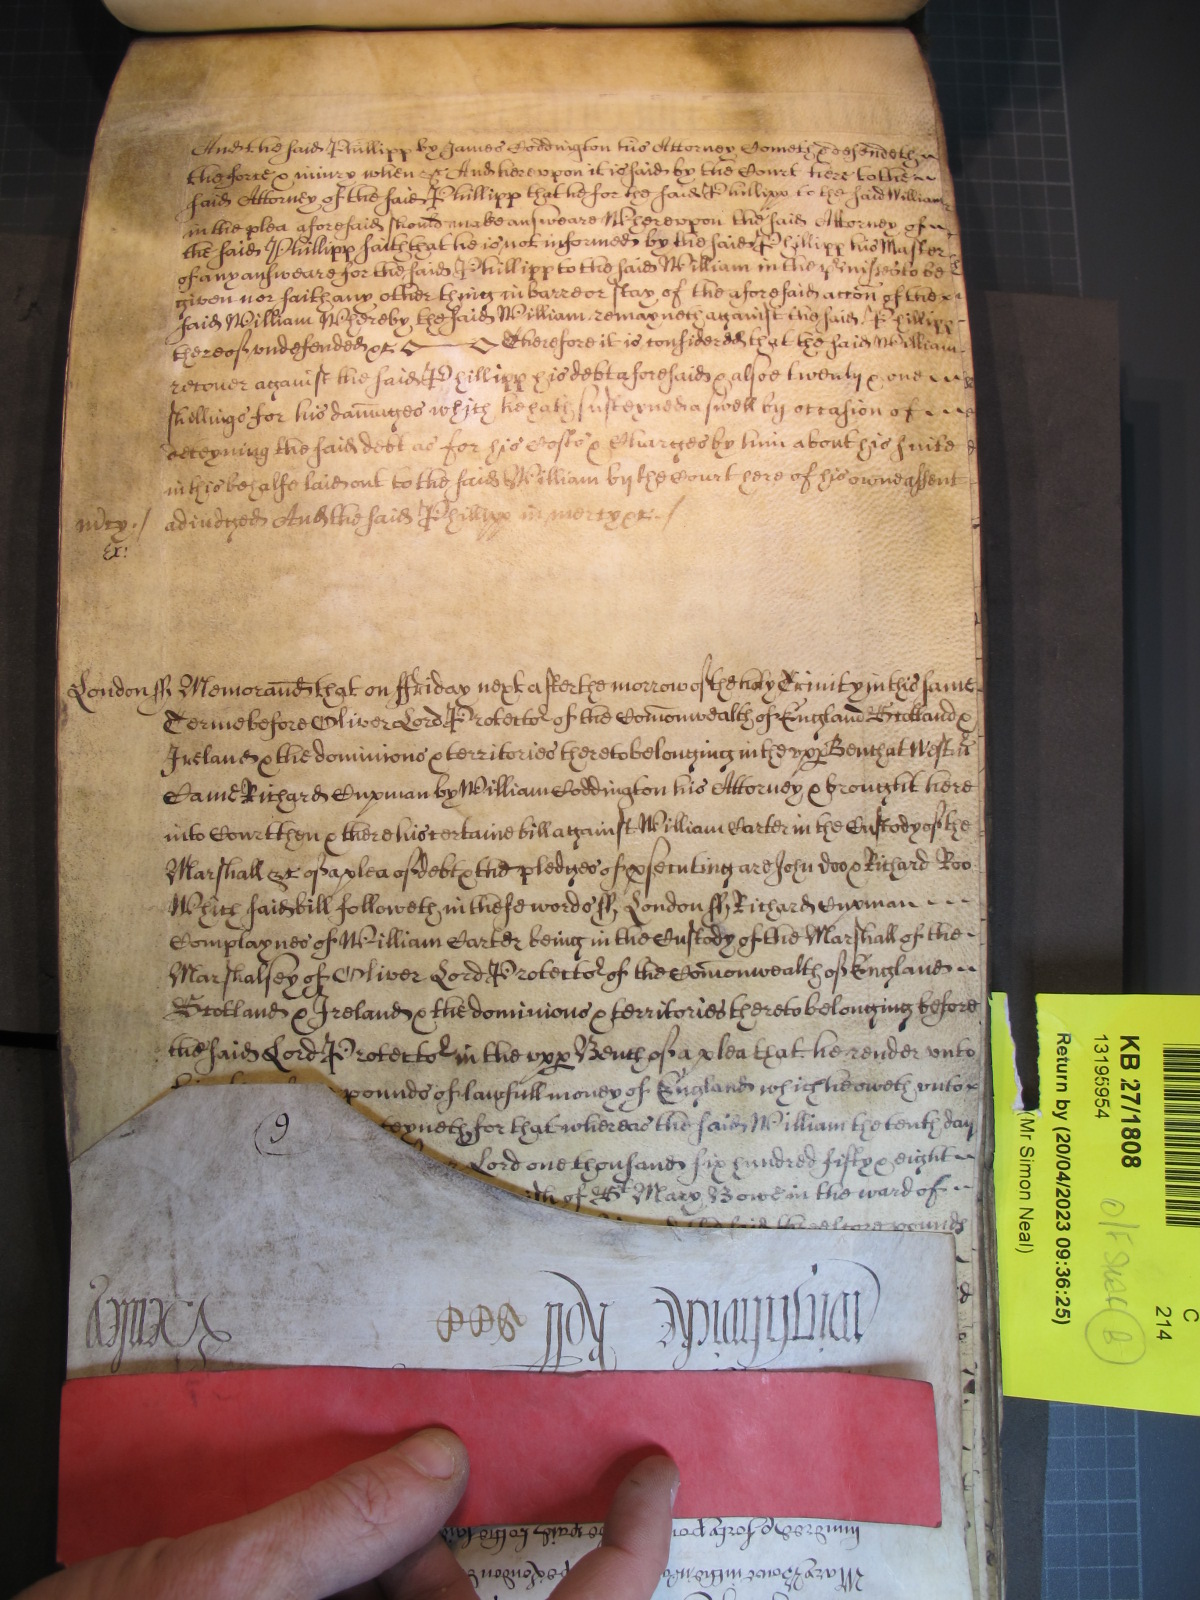 And the said Phillipp by James Coddington his Attorney Cometh & defendeth
the force & iniury when &c And hereupon it is said by the Court here to the
said Attorney of the said Phillipp that he for the said Phillipp to the said William
in the plea aforesaid should make answeare Whereupon the said Attorney of
the said Phillipp saith that he is not informed by the said Phillipp his Master
of any answeare for the said Phillipp to the said William in the p'misses to be
given nor saith any other thing in barre or stay of the aforesaid accon of the
said William Whereby the said William remayneth against the said Phillipp
thereof undefended &c Therefore it is considered that the said William
recover against the said Phillipp his debt aforesaid & alsoe twenty & one
shillings for his damages which he hath susteyned aswell by occasion of
deteyning the said debt as for his Costs & Charges by him about his suite
in this behalfe laid out to the said William by the Court here of his owne assent
adiudged And the said Phillipp in mercy &c
m'cy
Ex:
London ss Memorand that on ffriday next after the morrow of the holy Trinity in this same
Terme before Oliver Lord Protector of the Comonwealth of England Scotland &
Ireland & the dominions & territories thereto belonging in the upp Bench at Westm
Came Richard Cuxman by William Coddington his Attorney & brought here
into Court then & there his certaine bill against William Carter in the Custody of the
Marshall &c of a plea of debt & the pledges of p'secuting are John doo & Richard Roo
Which said bill followeth in these words ss London ss Richard Cuxman
Complaynes of William Carter being in the Custody of the Marshall of the
Marshalsey of Oliver Lord Protector of the Comonwealth of England
Scotland & Ireland & the dominions & territories thereto belonging before
the said Lord Protector in the upp Bench of a plea that he render unto
pounds of lawfull money of England which he oweth unto
teyneth for that whereas the said William the tenth day
Lord one thousand six hundred fifty & eight
of St Mary Bowe in the ward of
pounds
9
Wightwicke Roll
KB 27/1808
13195954
Return by (20/04/2023 09:36:25)
(Mr Simon Neal)
C
214